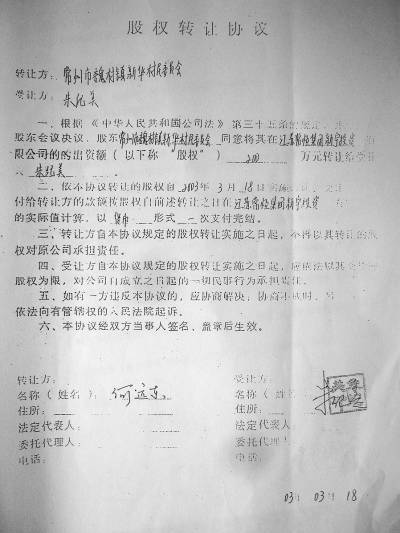 股权转让协议
转让方：常州市魏村镇新华村民委员会
受让方：朱
一、根据《中华人民共和国公司法》第三十五条的规定，
股东会决议，股东常州市魏村镇新华村民委员会同意将其在江苏常恒集团
限公司的出资额（以下称“股权”）200万元转让给受让
朱
二、依本协议转让的股权自2003年3月18日实施转让，
付给转让方的款额按股权自前述转让之日在江苏常恒集团
的实际值计算，以货币形式一次支付完结。
三、转让方自本协议规定的股权转让实施之日起，不再以其转让的股
权对原公司承担责任。
四、受让方自本协议规定的股权转让实施之日起，应依法以其
股权为限，对公司自成立之日起的一切民事行为承担责任。
五、如有一方违反本协议的，应协商解决；协商不成时，
依法向有管辖权的人民法院起诉。
六、本协议经双方当事人签名、盖章后生效。
转让方：
名称（姓名）：何远东
住所：
法定代表人：
委托代理人：
电话：
受让方：
名称（姓名）：
住所：
法定代表人：
委托代理人：
电话：
03年 03月 18